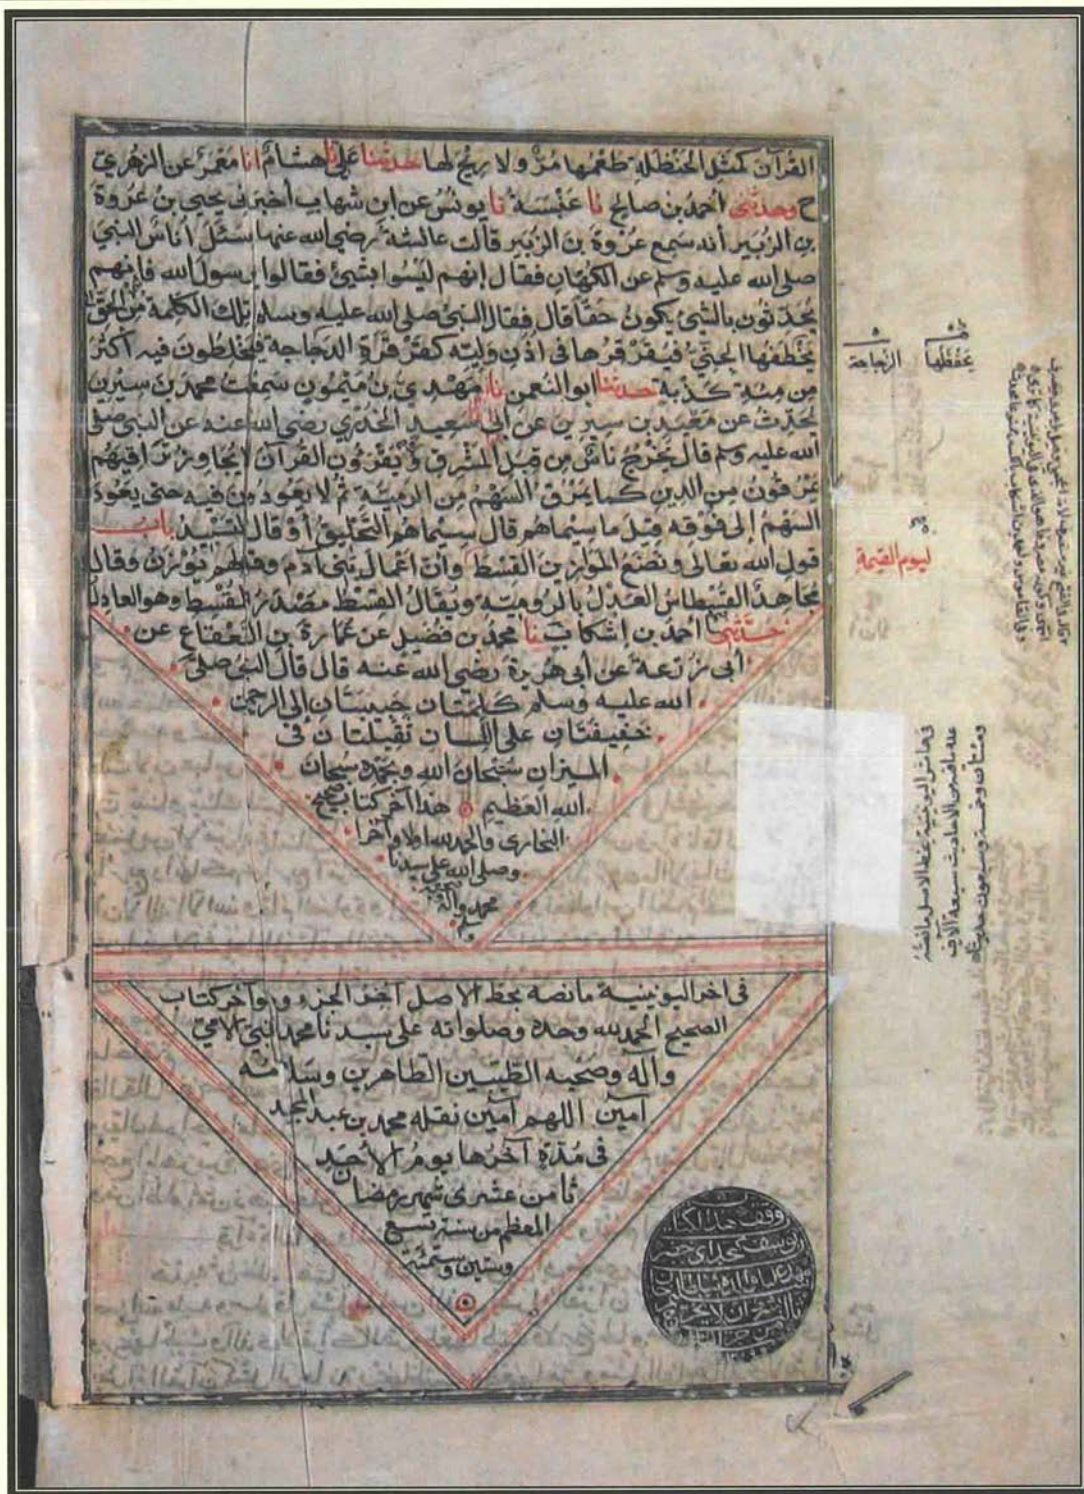 القرآن كمثل الحنظلة طعمها مر ولا ريح لها حدثنا علي نا هشام انا معمر عن الزهري
ح وحدثني أحمد بن صالح نا عنبسة نا يونس عن ابن شهاب أخبرني يحيى بن عروة
بن الزبير أنه سمع عروة بن الزبير قالت عائشة رضي الله عنها سئل أناس النبي
صلى الله عليه وسلم عن الكهان فقال إنهم ليسوا بشيئ فقالوا يرسول الله فإنهم
يحدثون بالشئ يكون حقا قال فقال النبي صلى الله عليه وسلم تلك الكلمة من الحق
يخطفها الجني فيقرقرها في اذن وليه كقرقرة الدجاجة فيخلطون فيه أكثر
من مئة كذبة حدثنا ابو النعمن نا مهدي بن ميمون سمعت محمد بن سيرين
يحدث عن معبد بن سيرين عن ابي سعيد الخدري رضي الله عنه عن النبي صلى
الله عليه وسلم قال يخرج ناس من قبل المشرق ويقرؤن القرآن لا يجاوز تراقيهم
يمرقون من الدين كما يمرق السهم من الرمية ثم لا يعودون فيه حتى يعود
السهم إلى فوقه قيل ما سيماهم قال سيماهم التحليق أو قال التسبيد باب
قول الله تعالى ونضع الموازين القسط وأن اعمال بني آدم وقولهم يوزن وقال
مجاهد القسطاس العدل بالرومية ويقال القسط مصدر المقسط وهو العادل
حدثني احمد بن إشكاب نا محمد بن فضيل عن عمارة بن القعقاع عن
أبي زرعة عن أبي هريرة رضي الله عنه قال قال النبي صلى
الله عليه وسلم كلمتان حبيبتان إلى الرحمن
خفيفتان على اللسان ثقيلتان في
الميزان سبحان الله وبحمده سبحان
الله العظيم هذا آخر كتاب صحيح
البخاري والحمد لله اولا وآخرا
وصلى الله على سيدنا
محمد وآله وصحبه
وسلم
عفطها
الزجاجة
ليوم القيمة
في هامش اليونينية بخط الاصل ما نصه
عدة ما فيه من الاحاديث سبعة آلاف
ومئتان وخمسة وسبعون حديثا
في آخر اليونينية ما نصه بخط الاصل آخر الجزء وهو آخر كتاب
الصحيح الحمد لله وحده وصلواته على سيدنا محمد النبي الامي
وآله وصحبه الطيبين الطاهرين وسلامه
آمين اللهم آمين نقله محمد بن عبد المجيد
في مدة آخرها يوم الأحد
ثامن عشري شهر رمضان
المعظم من سنة تسع
وستين وستمئة
وقف هذا الكتاب